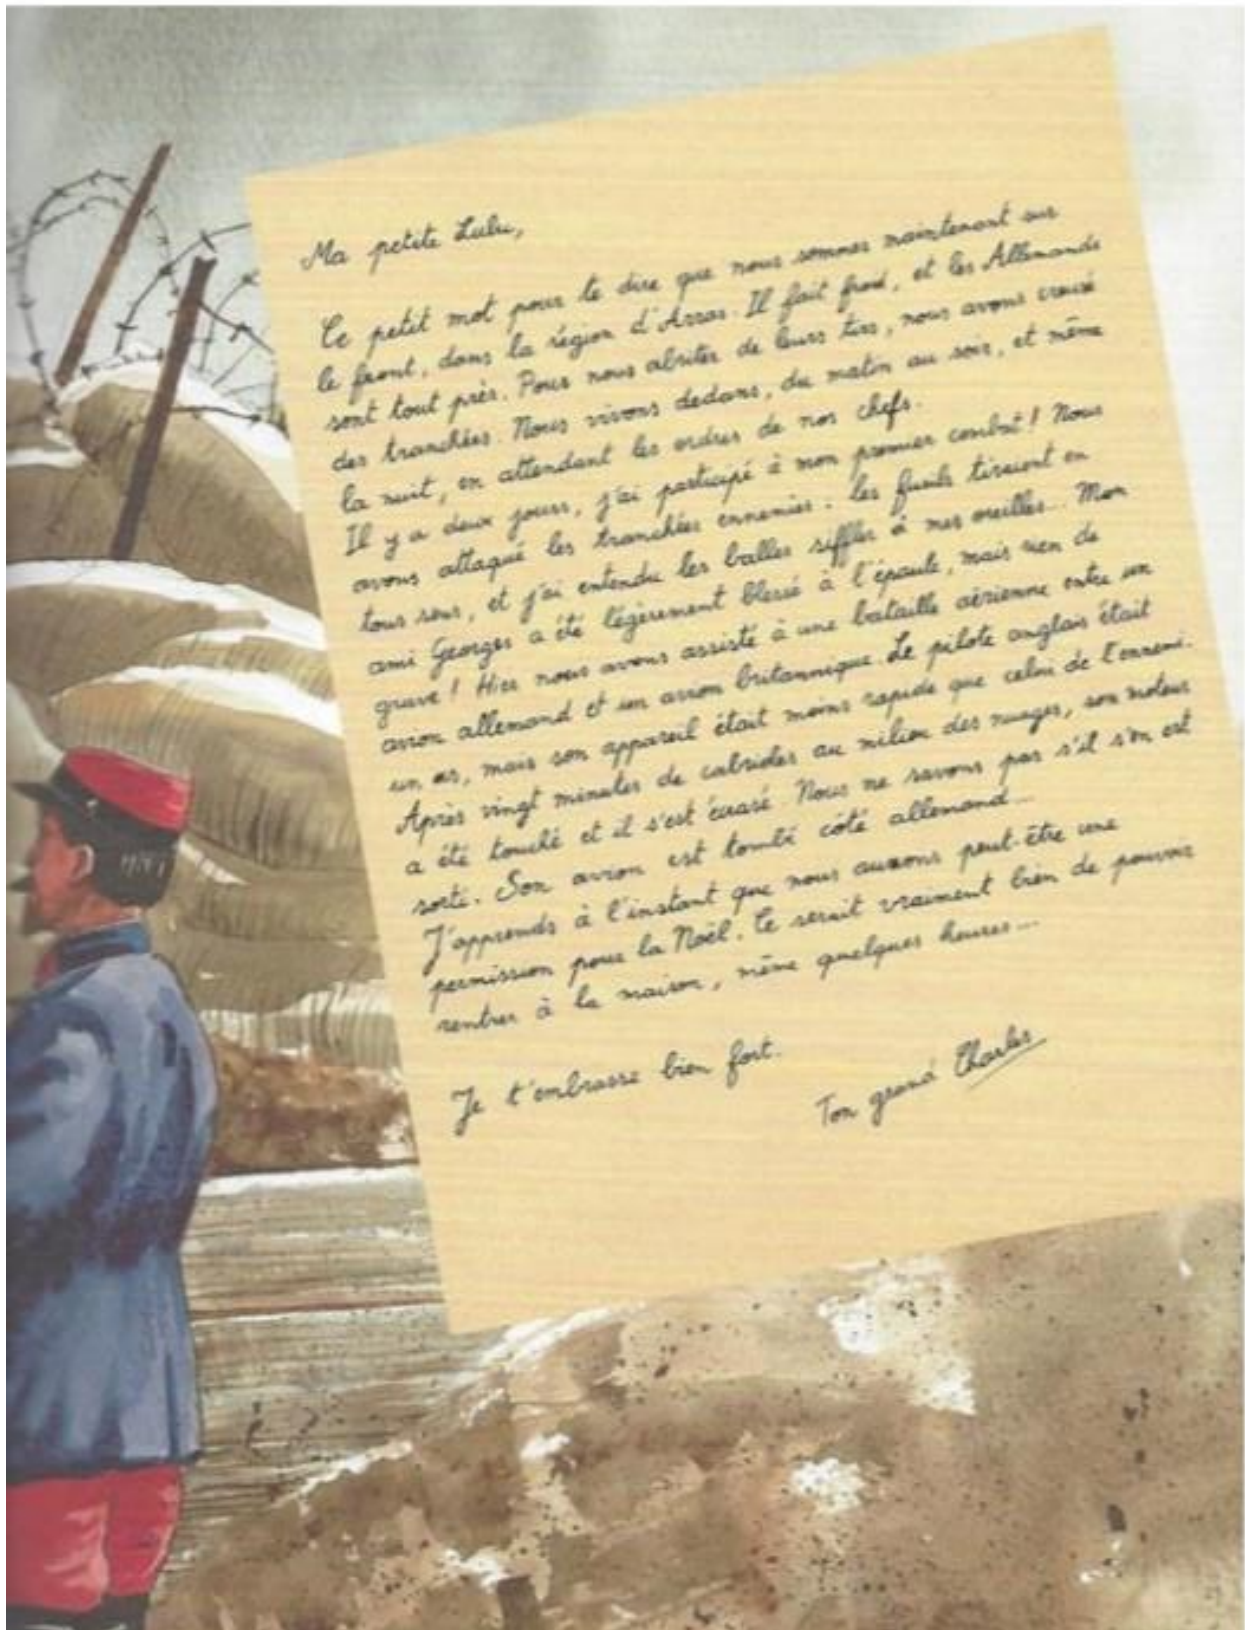 Ma petite Lulu,
Ce petit mot pour te dire que nous sommes maintenant sur
le front, dans la région d'Arras. Il fait froid, et les Allemands
sont tout près. Pour nous abriter de leurs tirs, nous avons creusé
des tranchées. Nous vivons dedans, du matin au soir, et même
la nuit, en attendant les ordres de nos chefs.
Il y a deux jours, j'ai participé à mon premier combat ! Nous
avons attaqué les tranchées ennemies : les fusils tiraient en
tous sens, et j'ai entendu les balles siffler à mes oreilles... Mon
ami Georges a été légèrement blessé à l'épaule, mais rien de
grave ! Hier nous avons assisté à une bataille aérienne entre un
avion allemand et un avion britannique. Le pilote anglais était
un as, mais son appareil était moins rapide que celui de l'ennemi.
Après vingt minutes de cabrioles au milieu des nuages, son moteur
a été touché et il s'est écrasé. Nous ne savons pas s'il s'en est
sorti. Son avion est tombé côté allemand...
J'apprends à l'instant que nous aurons peut-être une
permission pour la Noël. Ce serait vraiment bien de pouvoir
rentrer à la maison, même quelques heures...
Je t'embrasse bien fort.
Ton grand Charles